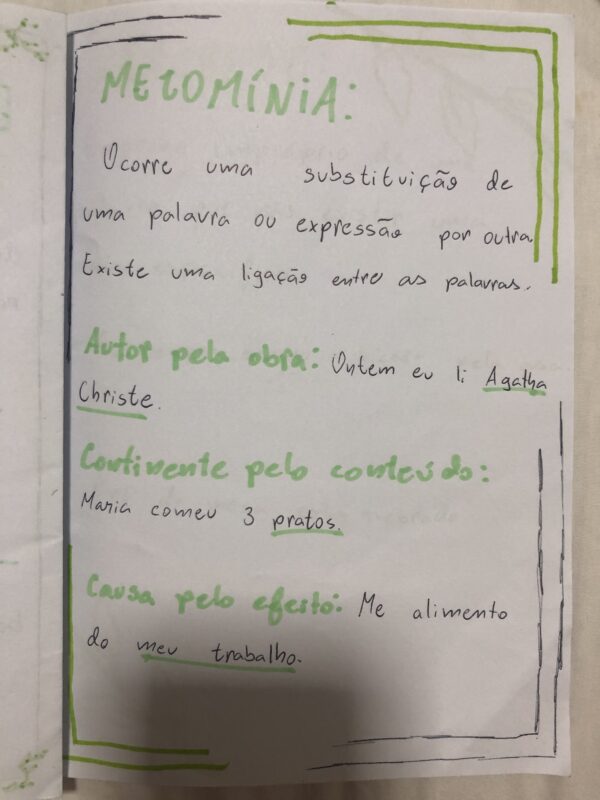 METOMÍNIA:
Ocorre uma substituição de
uma palavra ou expressão por outra.
Existe uma ligação entre as palavras.
Autor pela obra: Ontem eu li Agatha
Christe.
Continente pelo conteúdo:
Maria comeu 3 pratos.
Causa pelo efeito: Me alimento
do meu trabalho.